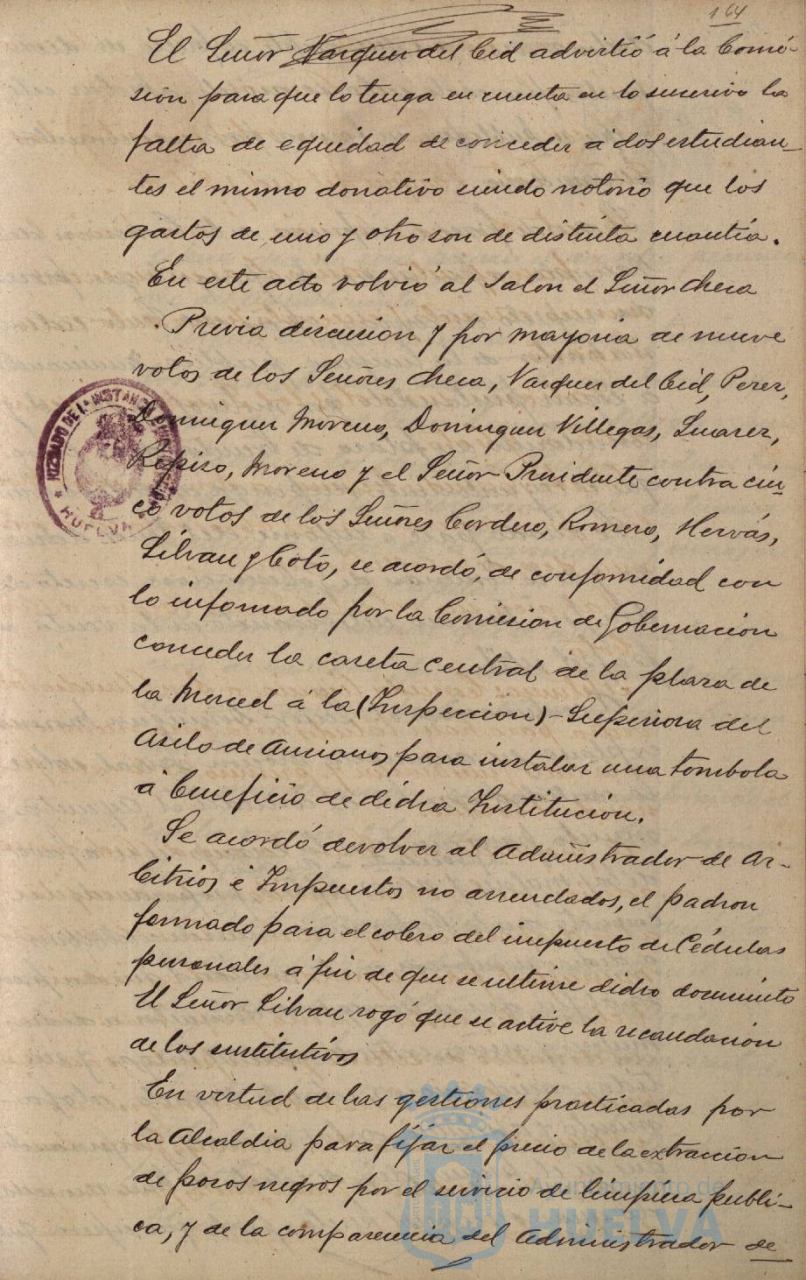 164
El Señor Vazquez del Cid advirtió á la Comi-
sión para que lo tenga en cuenta en lo sucesivo la
falta de equidad de conceder á dos estudian-
tes el mismo donativo siendo notorio que los
gastos de uno y otro son de distinta cuantía.
En este acto volvió al Salon el Señor Checa
Previa discusion y por mayoria de nueve
votos de los Señores Checa, Vazquez del Cid, Perez,
Dominguez Moreno, Dominguez Villegas, Suarez,
Repiso, Moreno y el Señor Presidente contra cin-
co votos de los Señores Cordero, Romero, Hervás,
Silvan y Coto, se acordó, de conformidad con
lo informado por la Comision de Gobernacion
conceder la caseta central de la plaza de
la Merced á la (Inspeccion)-Superiora del
Asilo de Ancianos para instalar una tómbola
á beneficio de dicha Institución.
Se acordó devolver al Administrador de Ar-
bitrios é Impuestos no arrendados, el padron
formado para el cobro del impuesto de Cédulas
personales á fin de que se ultime dicho documento
El Señor Silvan rogó que se active la recaudación
de los sustitutivos
En virtud de las gestiones practicadas por
la Alcaldia para fijar el precio de la extraccion
de pozos negros por el servicio de limpieza públi-
ca, y de la comparecencia del Administrador de
JUZGADO DE 1ª INSTANCIA
HUELVA
Ayuntamiento de
HUELVA